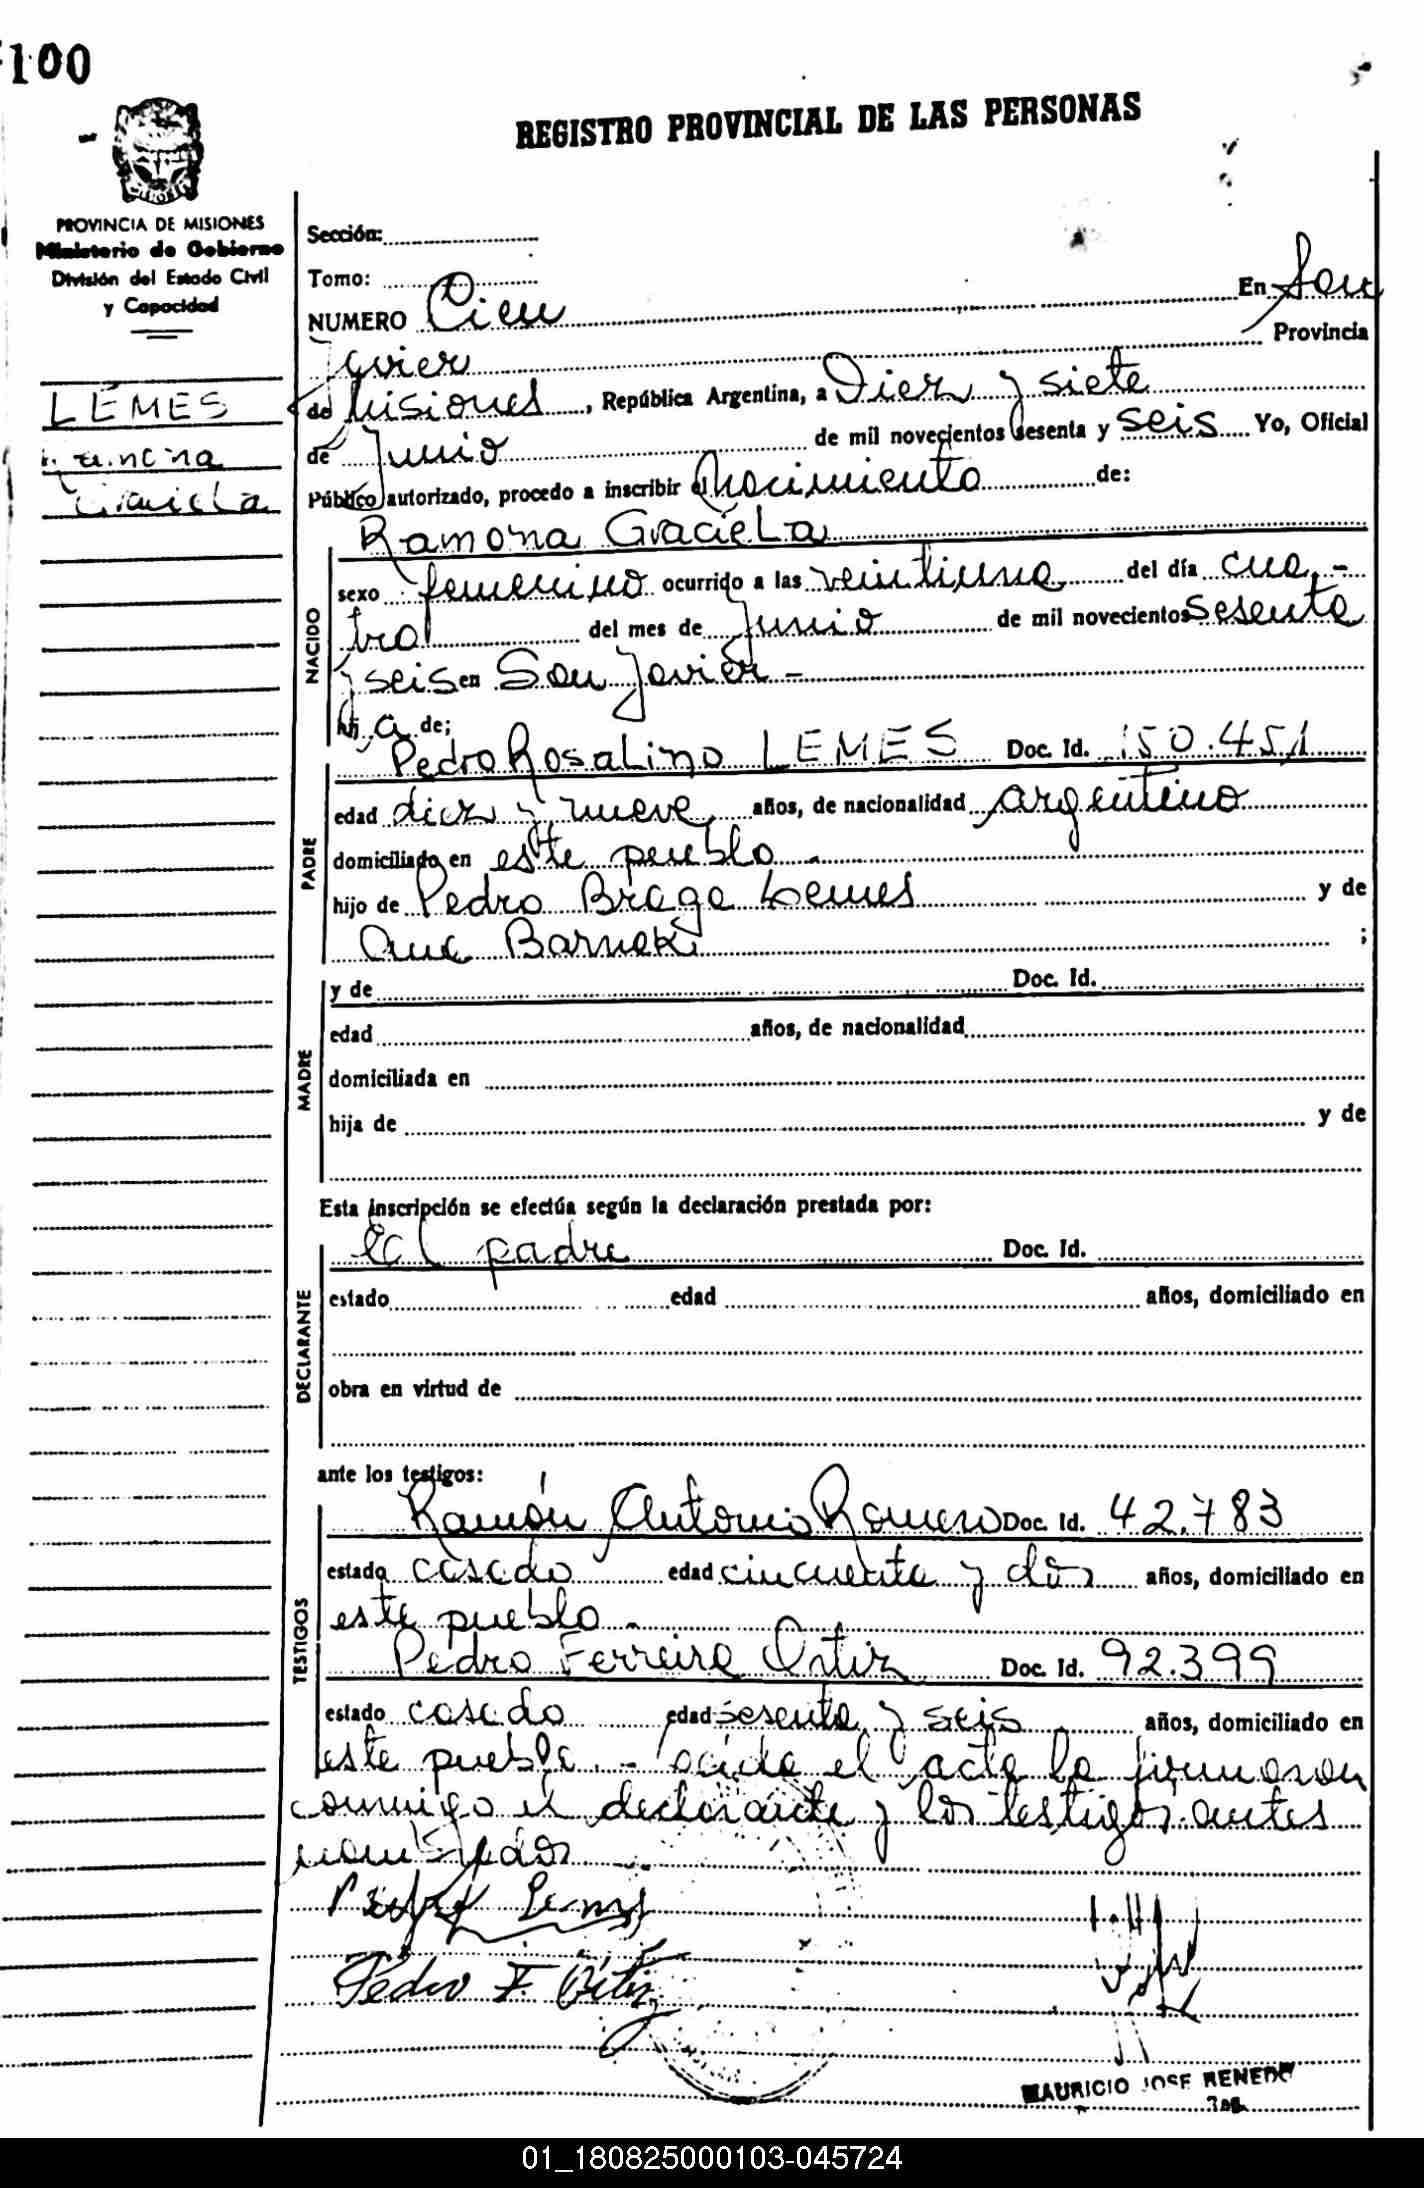 100
REGISTRO PROVINCIAL DE LAS PERSONAS
PROVINCIA DE MISIONES
Ministerio de Gobierno
División del Estado Civil
y Capacidad
LEMES
Ramona
Graciela
Sección:
Tomo:
NUMERO Cien En San
Javier Provincia
de Misiones, República Argentina, a Diez y siete
de Junio de mil novecientos sesenta y seis Yo, Oficial
Público autorizado, procedo a inscribir el Nacimiento de:
Ramona Graciela
NACIDO
sexo femenino ocurrido a las veintiuna del día cua-
tro del mes de Junio de mil novecientos Sesenta
y seis en San Javier-
hija de;
Pedro Rosalino LEMES Doc. Id. 150.451
PADRE
edad diez y nueve años, de nacionalidad argentino
domiciliado en este pueblo.
hijo de Pedro Braga Lemes y de
Ana Barneki ;
MADRE
y de Doc. Id.
edad años, de nacionalidad
domiciliada en
hija de y de
Esta inscripción se efectúa según la declaración prestada por:
DECLARANTE
el padre Doc. Id.
estado edad años, domiciliado en
obra en virtud de
ante los testigos:
TESTIGOS
Ramón Antonio Romero Doc. Id. 42.783
estado casado edad cincuenta y dos años, domiciliado en
este pueblo.
Pedro Ferreira Ortiz Doc. Id. 92.399
estado casado edad sesenta y seis años, domiciliado en
este pueblo.- el acta la firmaron
conmigo el declarante y los testigos antes
nombrados
Pedro F. Ortiz
MAURICIO JOSE RENEDO
01_180825000103-045724